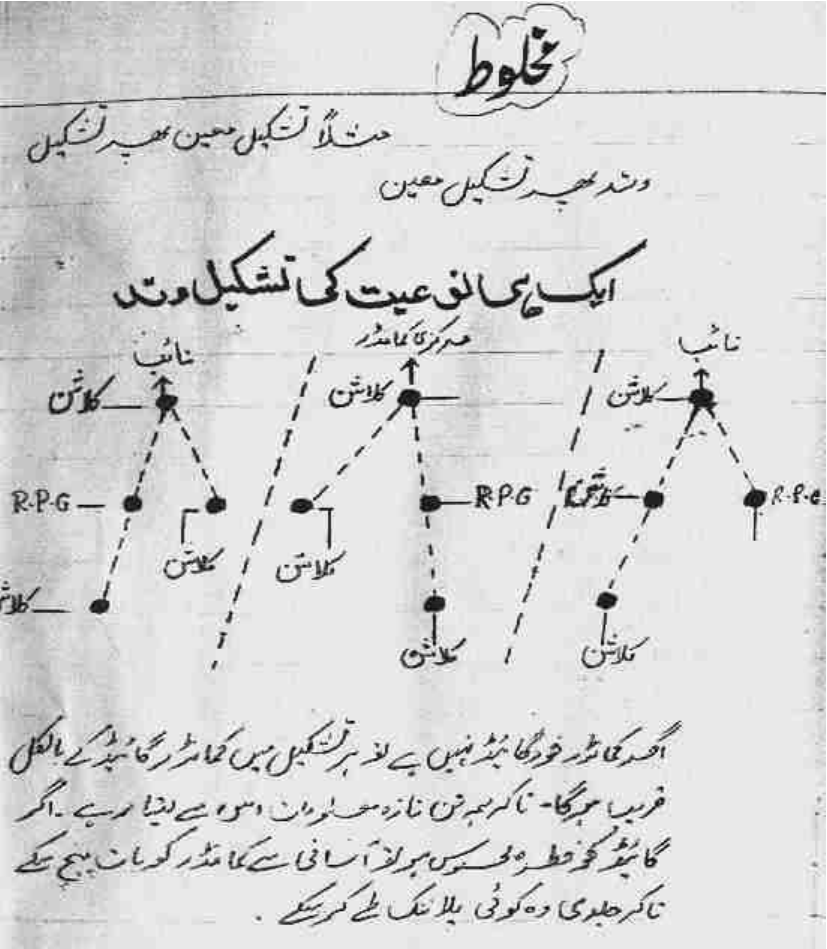 مخلوط
مثلاً تشکیل معین پھر تشکیل
وتد پھر تشکیل معین
ایک ہی نوعیت کی تشکیل وتد
نائب مرکزی کمانڈر نائب
کلاشن کلاشن کلاشن
R-P-G کلاشن R-P-G R-P-G
کلاشن کلاشن
کلاشن کلاشن کلاشن
اگر کمانڈر خود گائیڈ نہیں ہے تو ہر تشکیل میں کمانڈر گائیڈ کے بالکل
قریب ہوگا - تاکہ ہمہ تن تازہ معلومات اس سے لیتا رہے - اگر
گائیڈ کو خطرہ محسوس ہو تو آسانی سے کمانڈر کو بات پہنچ سکے
تاکہ جلدی وہ کوئی پلاننگ طے کر سکے .